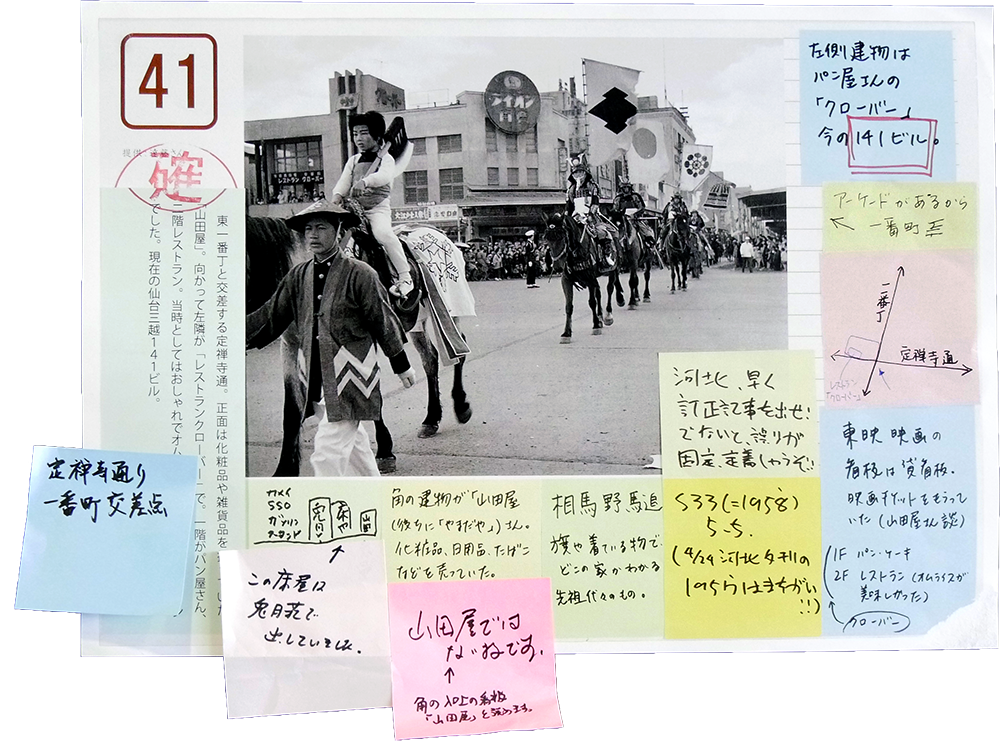 41
提供
確
東一番丁と交差する定禅寺通。正面は化粧品や雑貨品を
「山田屋」。向かって左隣が「レストランクローバー」で。一階がパン屋さん、
二階レストラン。当時としてはおしゃれでオム
でした。現在の仙台三越141ビル。
ライオン
レストラン クローバー
左側建物は
パン屋さんの
「クローバー」
今の141ビル。
アーケードがあるから
← 一番町
一番丁
定禅寺通
レストラン
「クローバー」
河北、早く
訂正記事を出せ!
でないと、誤りが
固定、定着しちゃうぞ!!
東映映画の
看板は貸看板。
映画チケットをもらって
いた(山田屋さん談)
1F パン・ケーキ
2F レストラン(オムライスが
美味しかった)
クローバー
定禅寺通り
一番町交差点
SSO
ガソリン
スタンド
山田
角の建物が「山田屋
(彼方に「やまだや」)さん。
化粧品、日用品、たばこ
などを売っていた。
相馬野馬追
旗や着ている物で、
どこの家かわかる
先祖代々のもの。
S33(=1958)
5.5.
(4/29 河北夕刊の
1955はまちがい
!!)
この床屋は
兎月荘で
出していました。
山田屋では
ないねです。
↑
角の入口上の看板
「山田屋」と読めます。